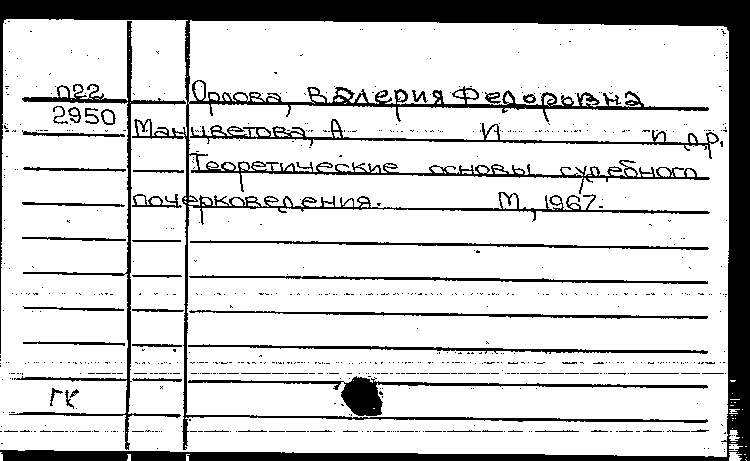 п22 Орлова, Валерия Федоровна
2950 Манцветова, А И и др.
Теоретические основы судебного
почерковедения. М., 1967.
ГК